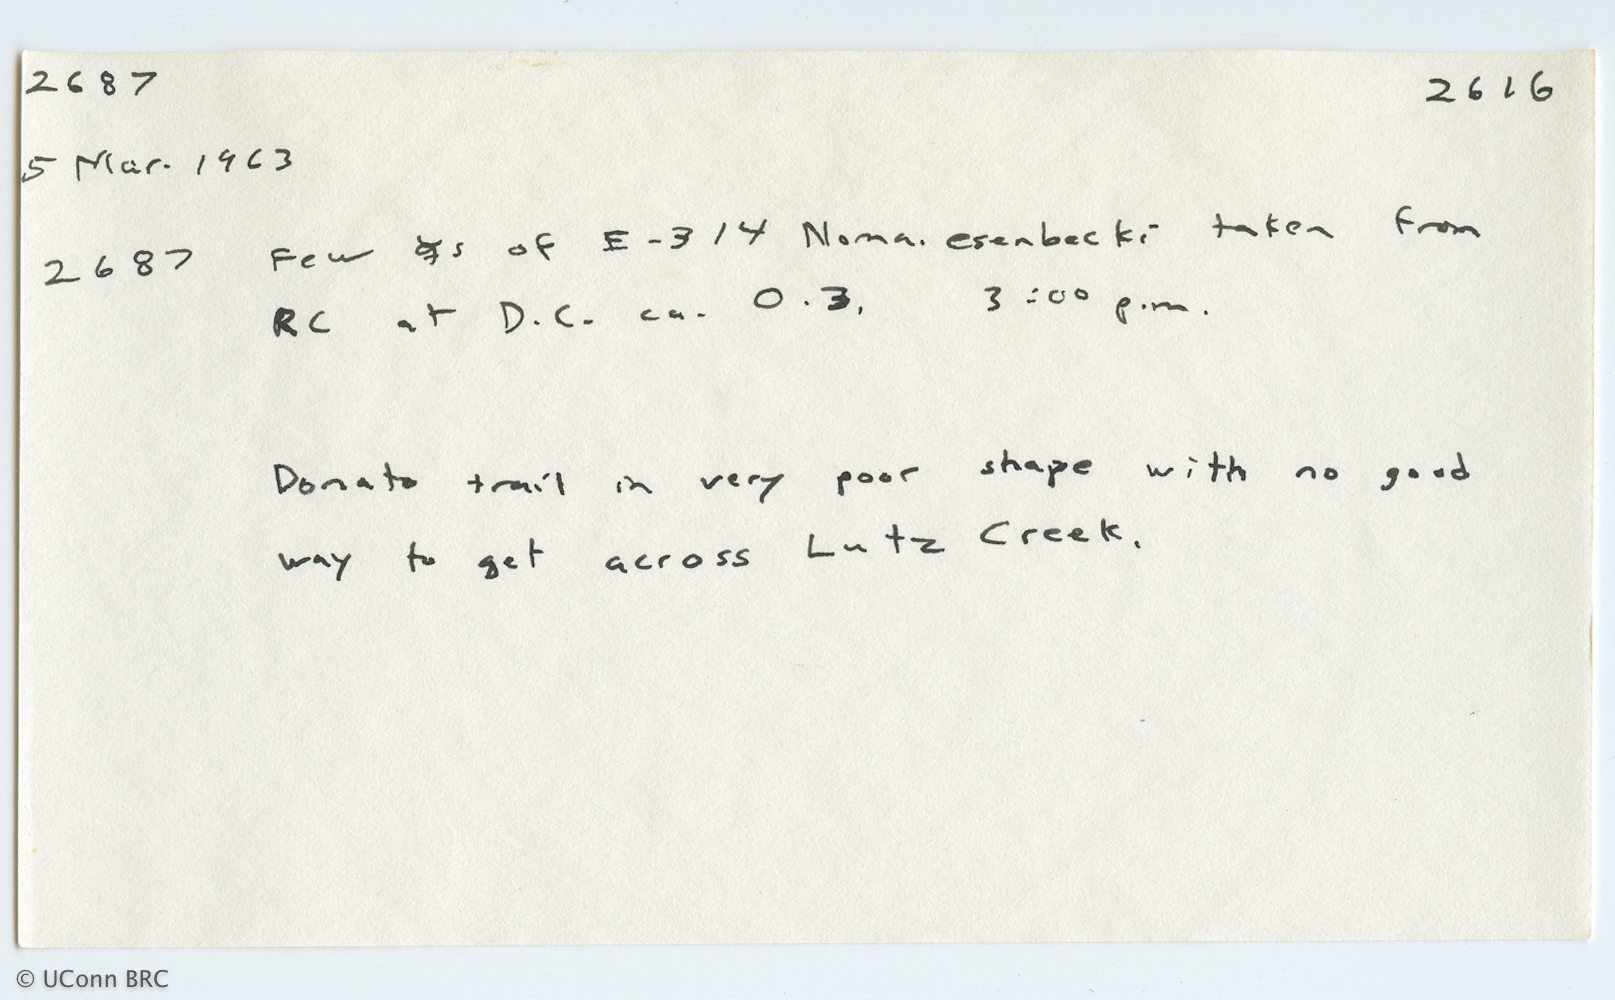 2687 2616
5 Mar. 1963
2687 Few ☿s of E-314 Noma. esenbecki taken from
RC at D.C. ca. 0.3. 3:00 p.m.
Donato trail in very poor shape with no good
way to get across Lutz Creek.
© UConn BRC